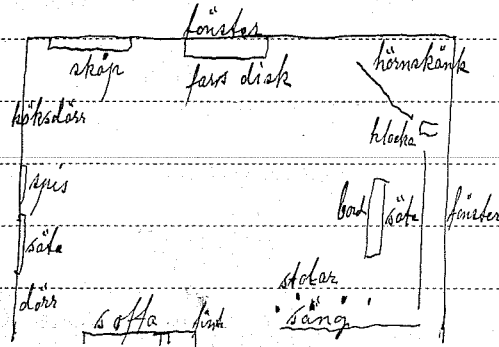 fönster
skåp
fars disk
hörnskänk
köksdörr
klocka
spis
bord
säte
fönster
säte
dörr
stolar
soffa
säng